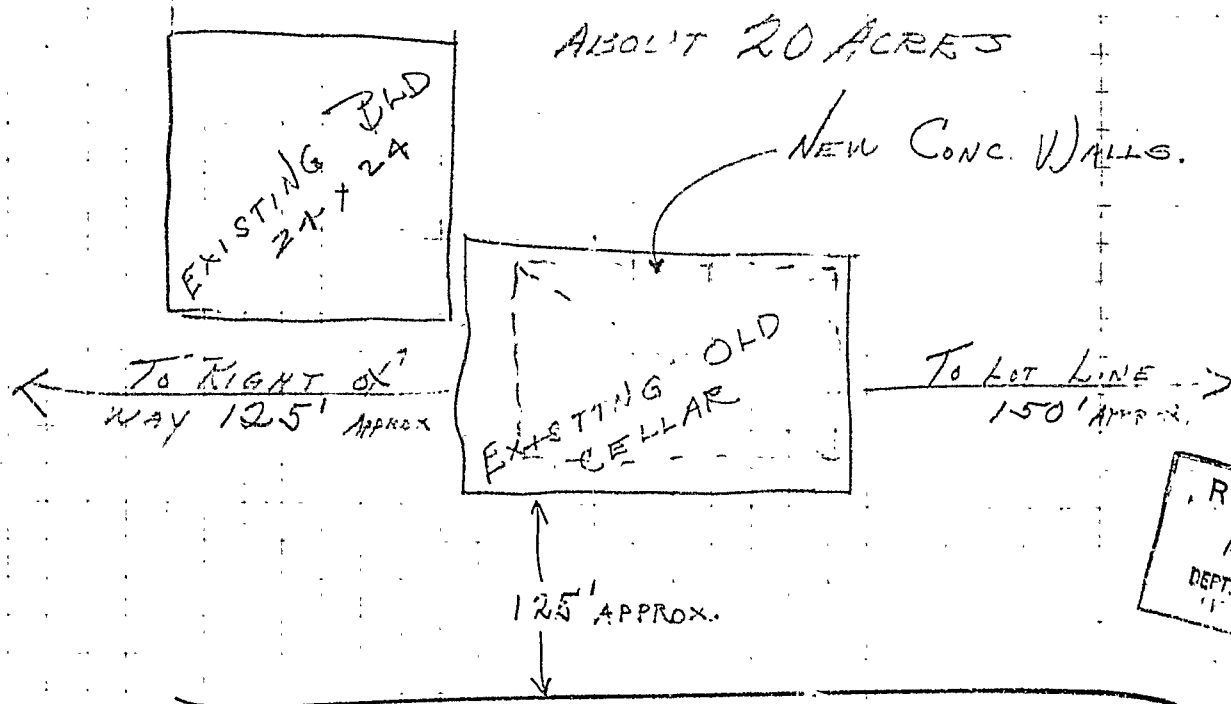 ABOUT 20 ACRES
EXISTING BLD
24 x 24
NEW CONC. WALLS.
EXISTING OLD
CELLAR
TO RIGHT OF
WAY 125' APPROX
TO LOT LINE
150' APPROX.
R
DEPT.
125' APPROX.